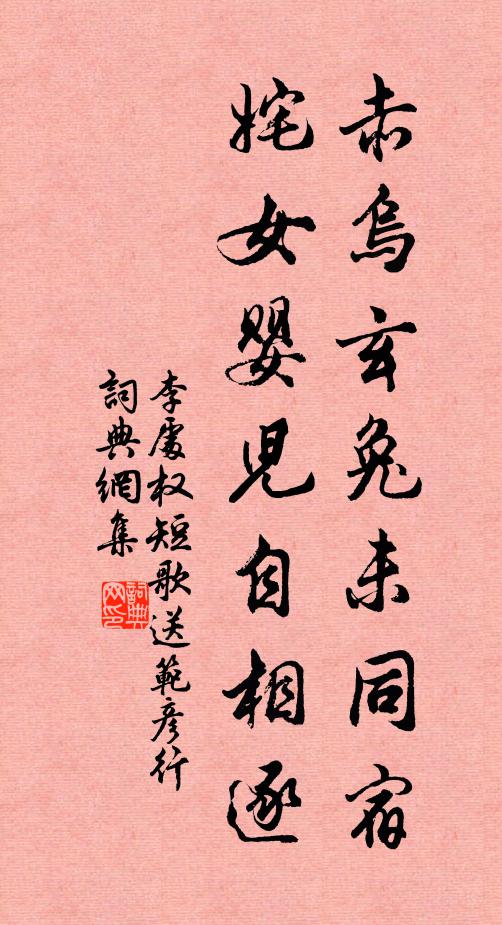 赤烏玄兔未同宿
姹女嬰兒自相逐
李處权短歌送範彥行
詞典網集
詞典网印